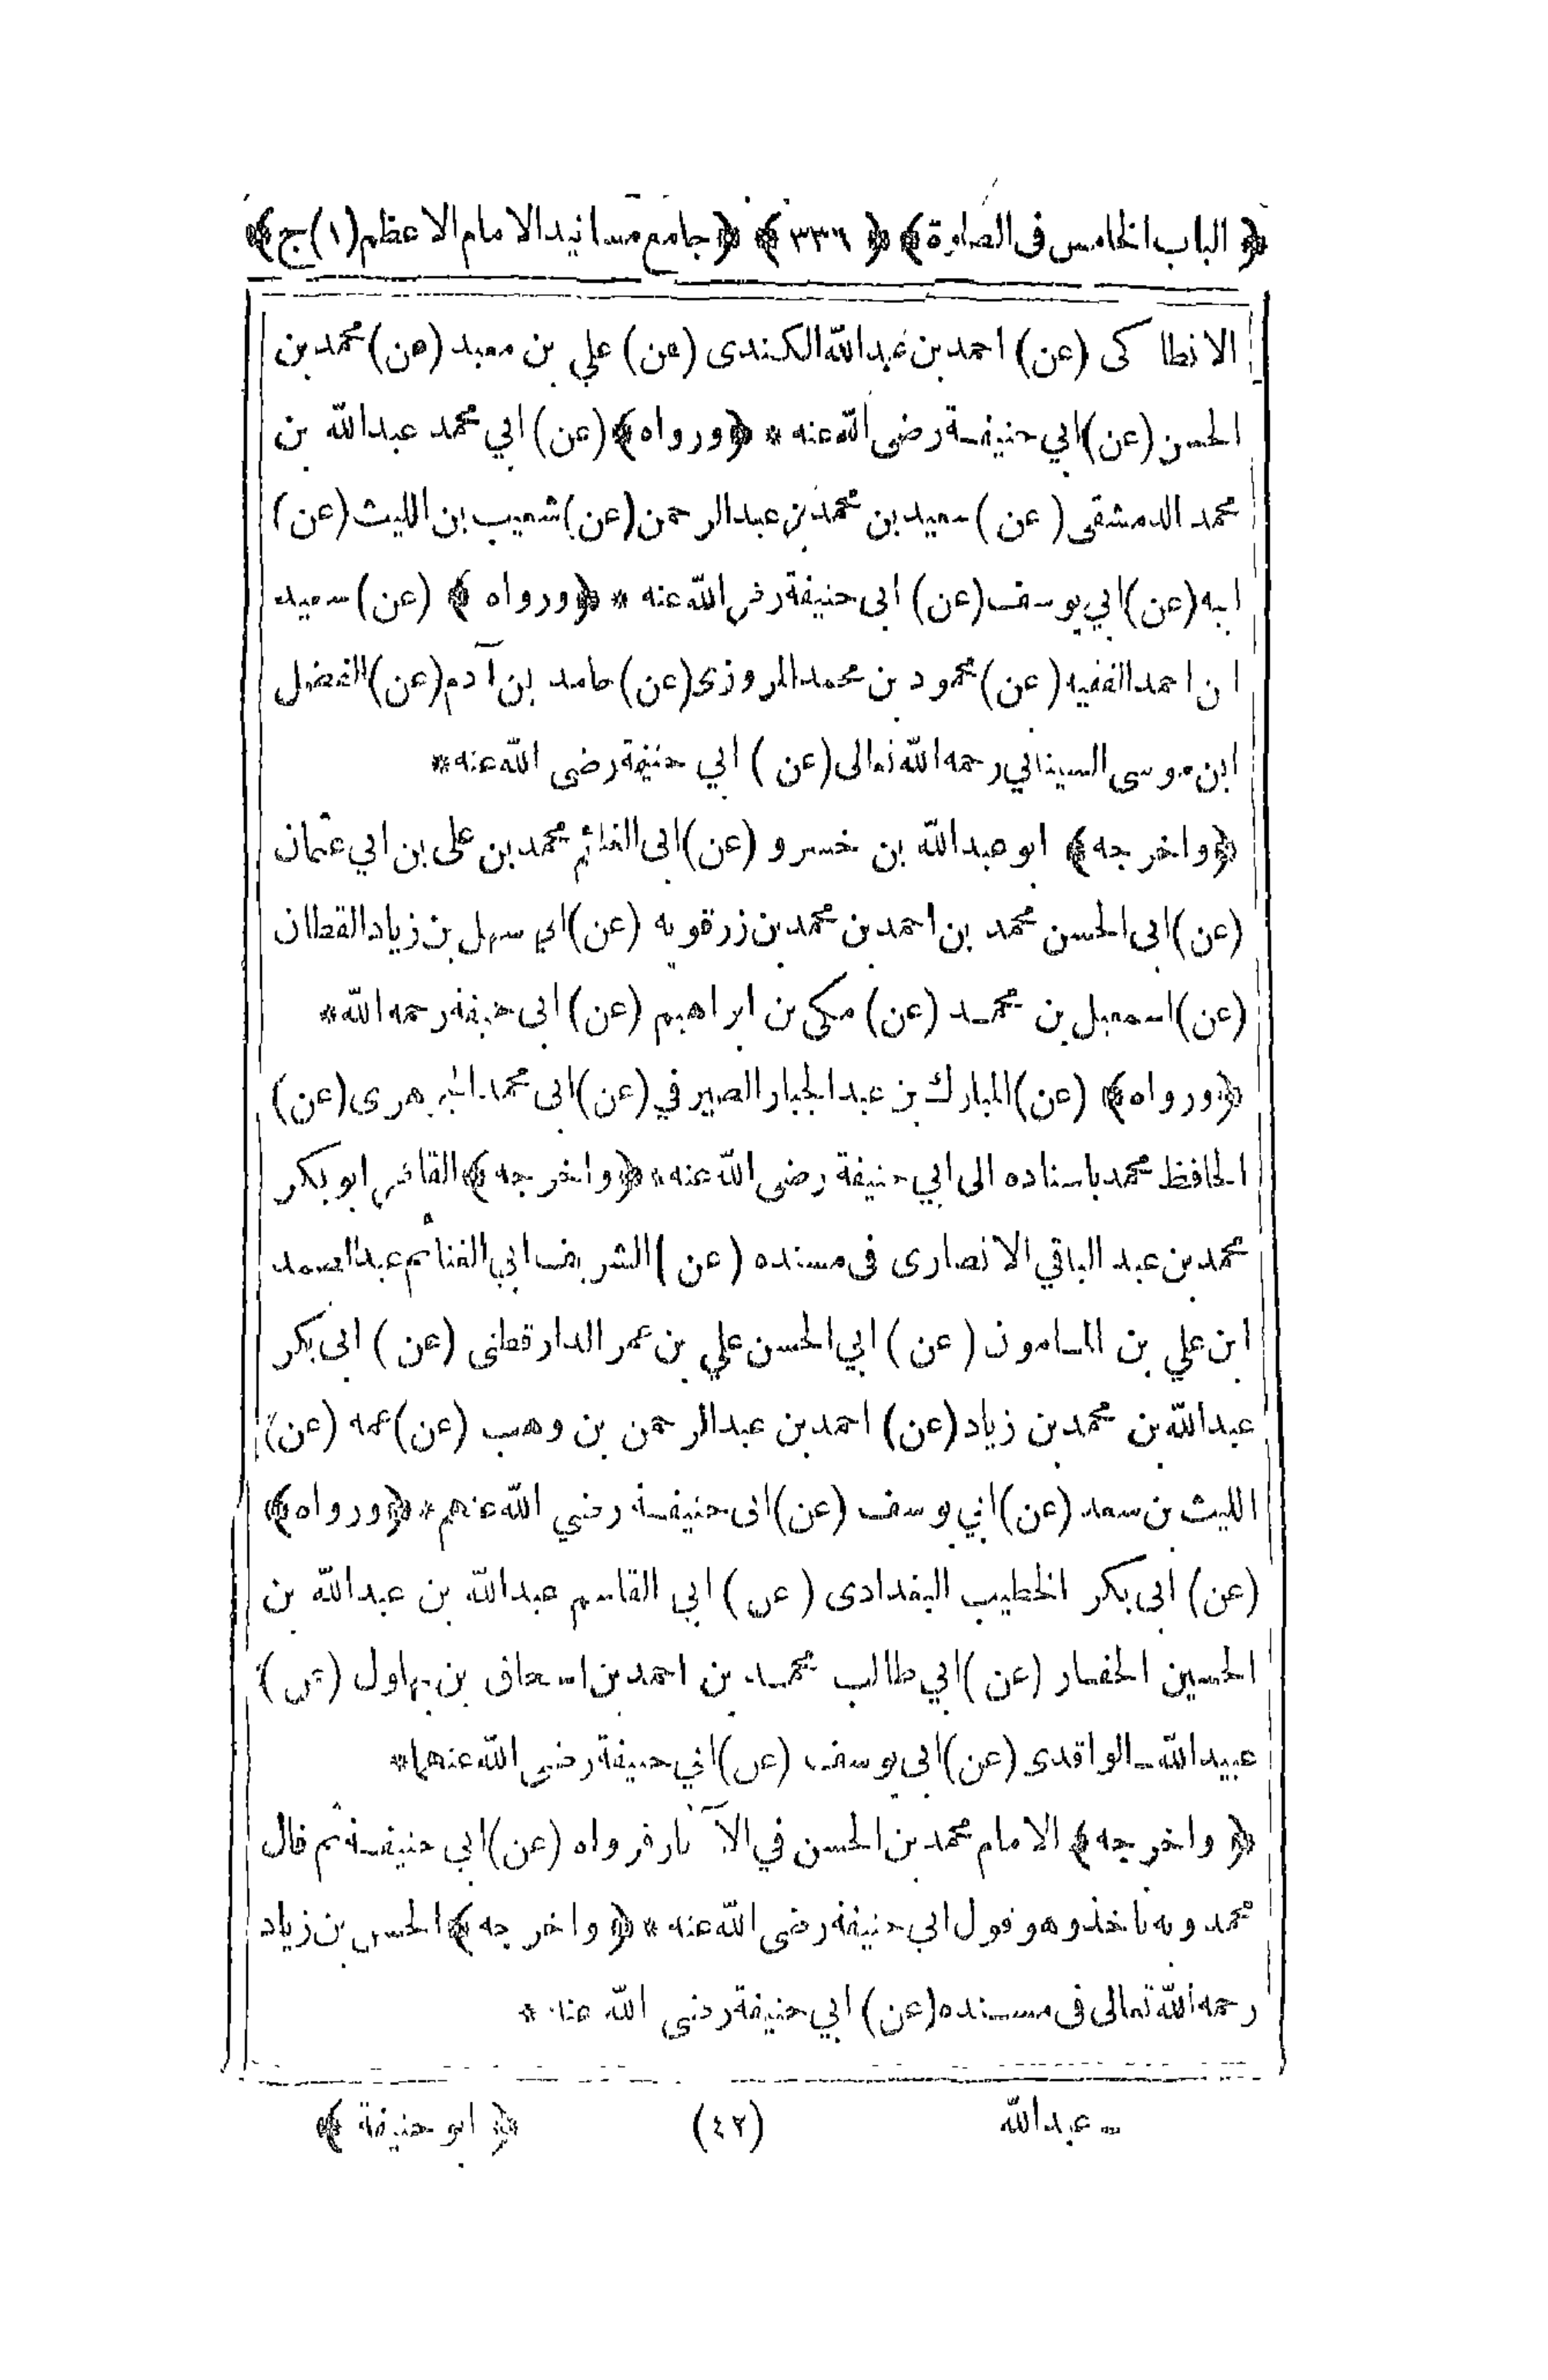 ﴿ الباب الخامس فى الصلوة ﴾ ﴿ ٣٣٦ ﴾ ﴿ جامع مسانيد الامام الاعظم (١) ج ﴾
الانطاكى (عن) احمد بن عبدالله الكندى (عن) علي بن معبد (عن) محمد بن
الحسن (عن) ابي حنيفة رضى الله عنه * ﴿ ورواه ﴾ (عن) ابي محمد عبدالله بن
محمد الدمشقى (عن) سعيد بن محمد بن عبدالرحمن (عن) شعيب بن الليث (عن)
ابيه (عن) ابي يوسف (عن) ابى حنيفة رضى الله عنه * ﴿ ورواه ﴾ (عن) سعيد
ابن احمد الفقيه (عن) محمود بن محمد المروزى (عن) حامد بن آدم (عن) الفضل
ابن موسى السيناني رحمه الله تعالى (عن) ابي حنيفة رضى الله عنه *
﴿ واخرجه ﴾ ابو عبدالله بن خسرو (عن) ابى الغنائم محمد بن على بن ابي عثمان
(عن) ابى الحسن محمد بن احمد بن محمد بن زرقويه (عن) ابي سهل بن زياد القطان
(عن) اسمعيل بن محمد (عن) مكى بن ابراهيم (عن) ابى حنيفة رحمه الله *
﴿ ورواه ﴾ (عن) المبارك بن عبد الجبار الصيرفي (عن) ابى محمد الجوهرى (عن)
الحافظ محمد باسناده الى ابي حنيفة رضى الله عنه * ﴿ واخرجه ﴾ القاضى ابو بكر
محمد بن عبد الباقي الانصارى فى مسنده (عن) الشريف ابي الغنائم عبدالصمد
ابن علي بن المامون (عن) ابي الحسن علي بن عمر الدارقطنى (عن) ابى بكر
عبدالله بن محمد بن زياد (عن) احمد بن عبدالرحمن بن وهب (عن) عمه (عن)
الليث بن سعد (عن) ابي يوسف (عن) ابى حنيفة رضي الله عنهم * ﴿ ورواه ﴾
(عن) ابى بكر الخطيب البغدادى (عن) ابي القاسم عبدالله بن عبدالله بن
الحسين الحفار (عن) ابي طالب محمد بن احمد بن اسحاق بن بهلول (عن)
عبيدالله ـ الواقدى (عن) ابى يوسف (عن) ابي حنيفة رضى الله عنهما *
﴿ واخرجه ﴾ الامام محمد بن الحسن في الآثار فرواه (عن) ابي حنيفة ثم قال
محمد وبه ناخذ وهو قول ابي حنيفة رضى الله عنه * ﴿ واخرجه ﴾ الحسن بن زياد
رحمه الله تعالى فى مسنده (عن) ابي حنيفة رضى الله عنه *
ـ عبدالله (٤٢) ﴿ ابو حنيفة ﴾